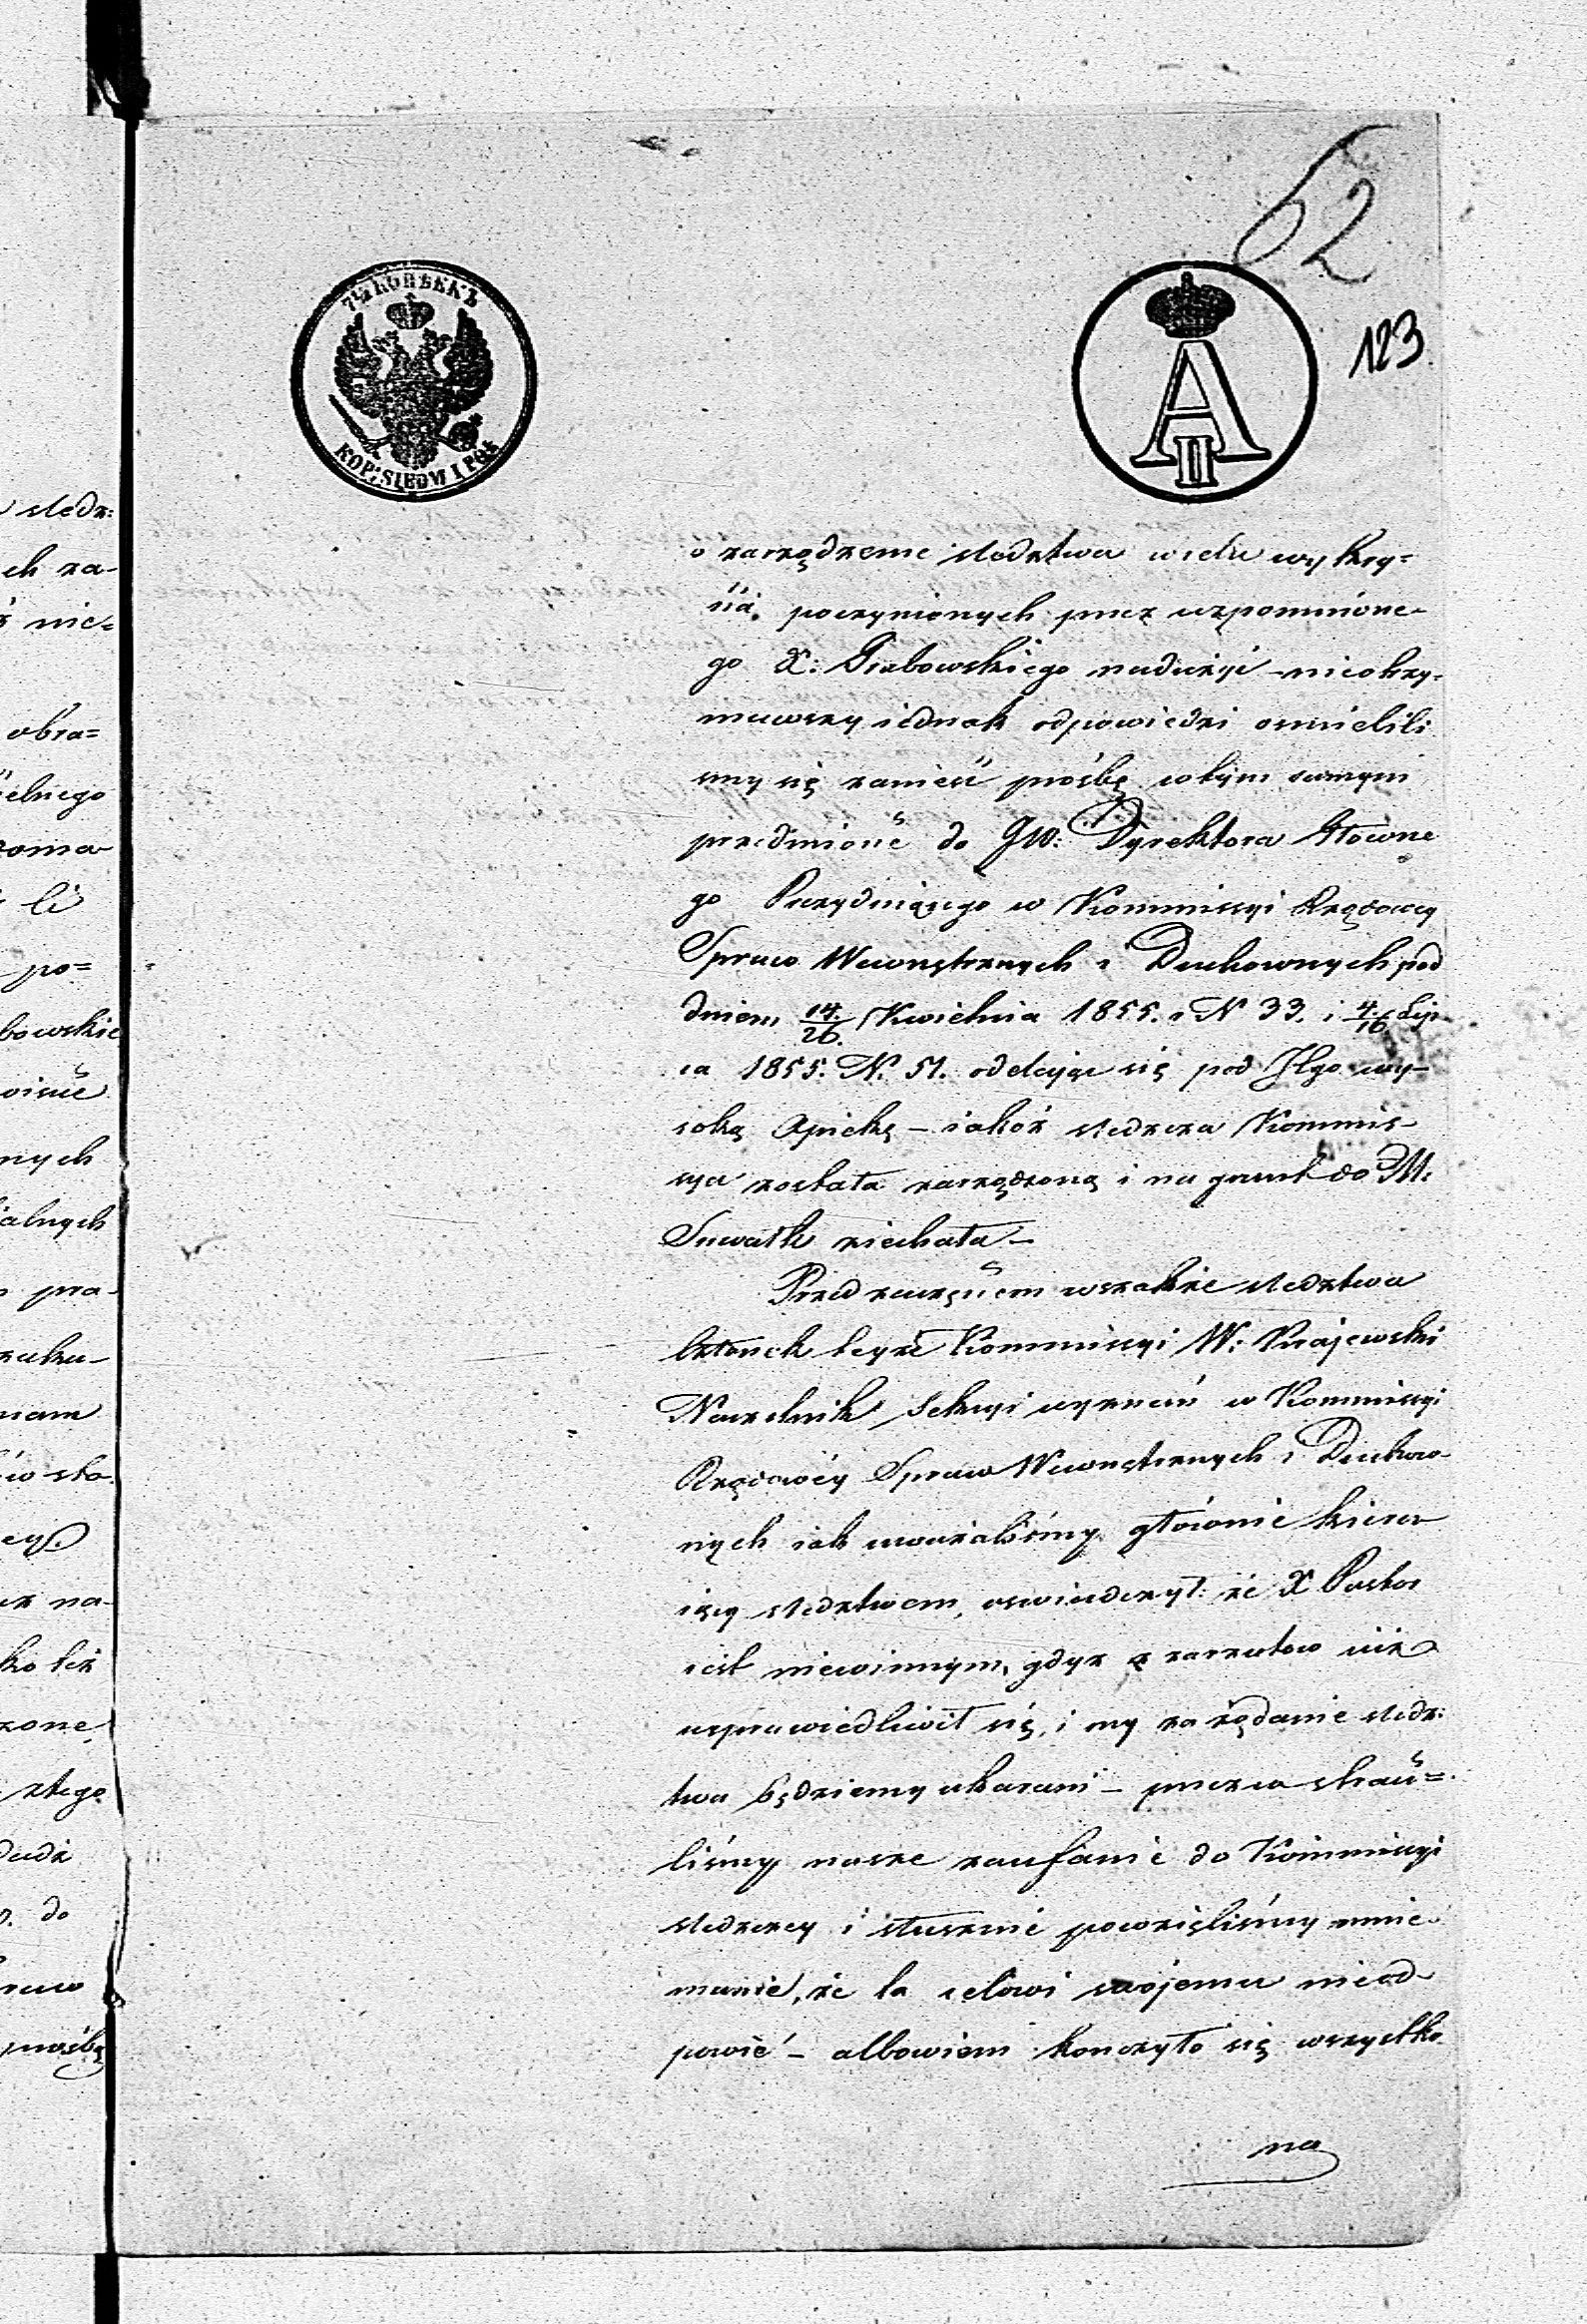 62
7½ КОПѢЕКЪ
KOP: SIEDM I PÓŁ
A II
123
śledz:
ch za-
nie=
obra=
ielnego
li
po=
bowskie
nych
ialnych
pra-
mam
na-
zone
złego
do
prośbę
o zarządzenie śledztwa w celu wykry=
cia poczynionych przez wzpomnione-
go X: Grabowskiego nadużyć – nieotrzy-
mawszy iednak odpowiedzi ośmielili
smy się zanieść prośbę w tym samym
przedmiocie do JW: Dyrektora Głowne
go Prezydującego w Kommissyi Rządowey
Spraw Wewnętrznych i Duchownych pod
dniem 14/26. Kwietnia 1855. N 33. i 4/16 Lip
ca 1855. N. 51. oddaiąc się pod Jego wy-
soką Opiekę – iakoż śledcza Kommis-
sya została zarządzoną i na grunt do M.
Suwałk ziechała –
Przed zaczęciem wszakże śledztwa
członek teyże Kommissyi W: Kraiewski
Naczelnik Sekcyi wyznań w Kommissyi
Rządowéy Spraw Wewnętrznych i Duchow-
nych iak uważaliśmy głównie kieru-
iący śledztwem, oswiadczył: że X Pastor
iest niewinnym, gdyż z zarzutow iuż
usprawiedliwił się, i my za żądanie śledz:
twa będziemy ukarani – przezco straci=
liśmy nasze zaufanie do Kommissyi
śledczey i słusznie powzięliśmy mnie-
manie, że ta celowi swojemu nieod-
powié – albowiem kończyło się wszystko
na